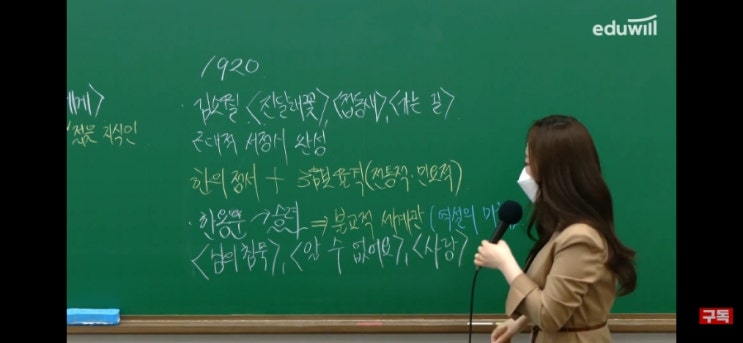 eduwill
1920
에게〉
젊은 지식인
· 김소월 〈진달래꽃〉, 〈접동새〉, 〈가는 길〉
근대적 서정시 완성
한의 정서 + 3음보 율격 (전통적·민요적)
· 한용운 승려 ⇒ 불교적 세계관 (역설의 미
〈님의 침묵〉, 〈알 수 없어요〉, 〈사랑〉
구독